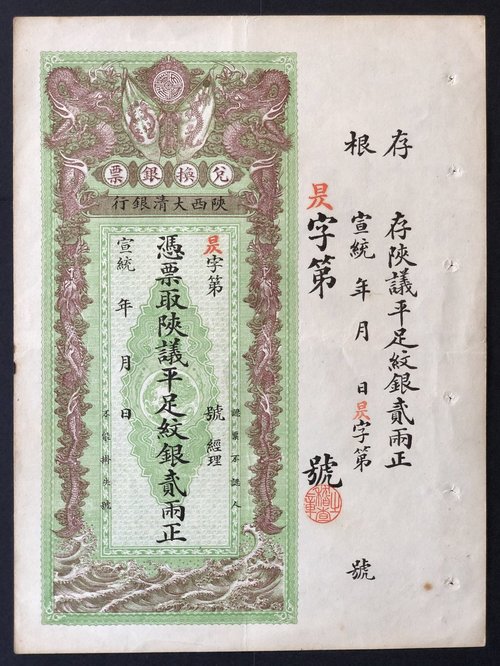 存根
存陝議平足紋銀貳兩正
宣統 年 月 日 昃字第 號
昃字第 號
兌換銀票
陝西大清銀行
認票不認人
昃字第 號 經理
憑票取陝議平足紋銀貳兩正
宣統 年 月 日
不能掛失號